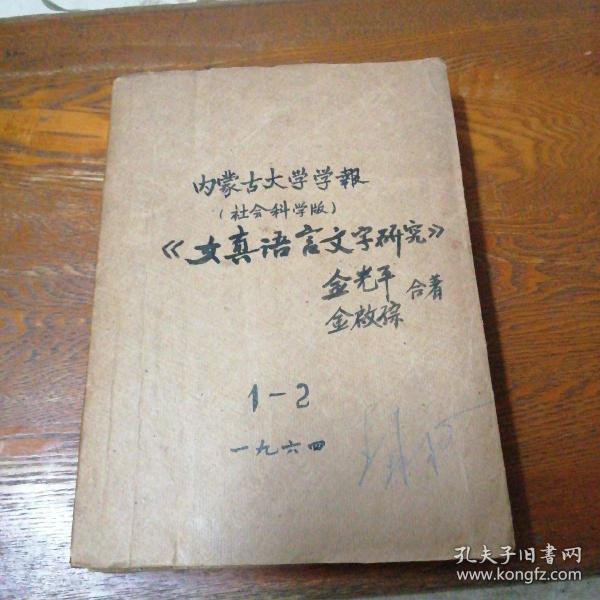 内蒙古大学学報
（社会科学版）
《女真语言文字研究》
金光平
金啟孮
合著
1-2
一九六四
孔夫子旧书网
www.kongfz.com